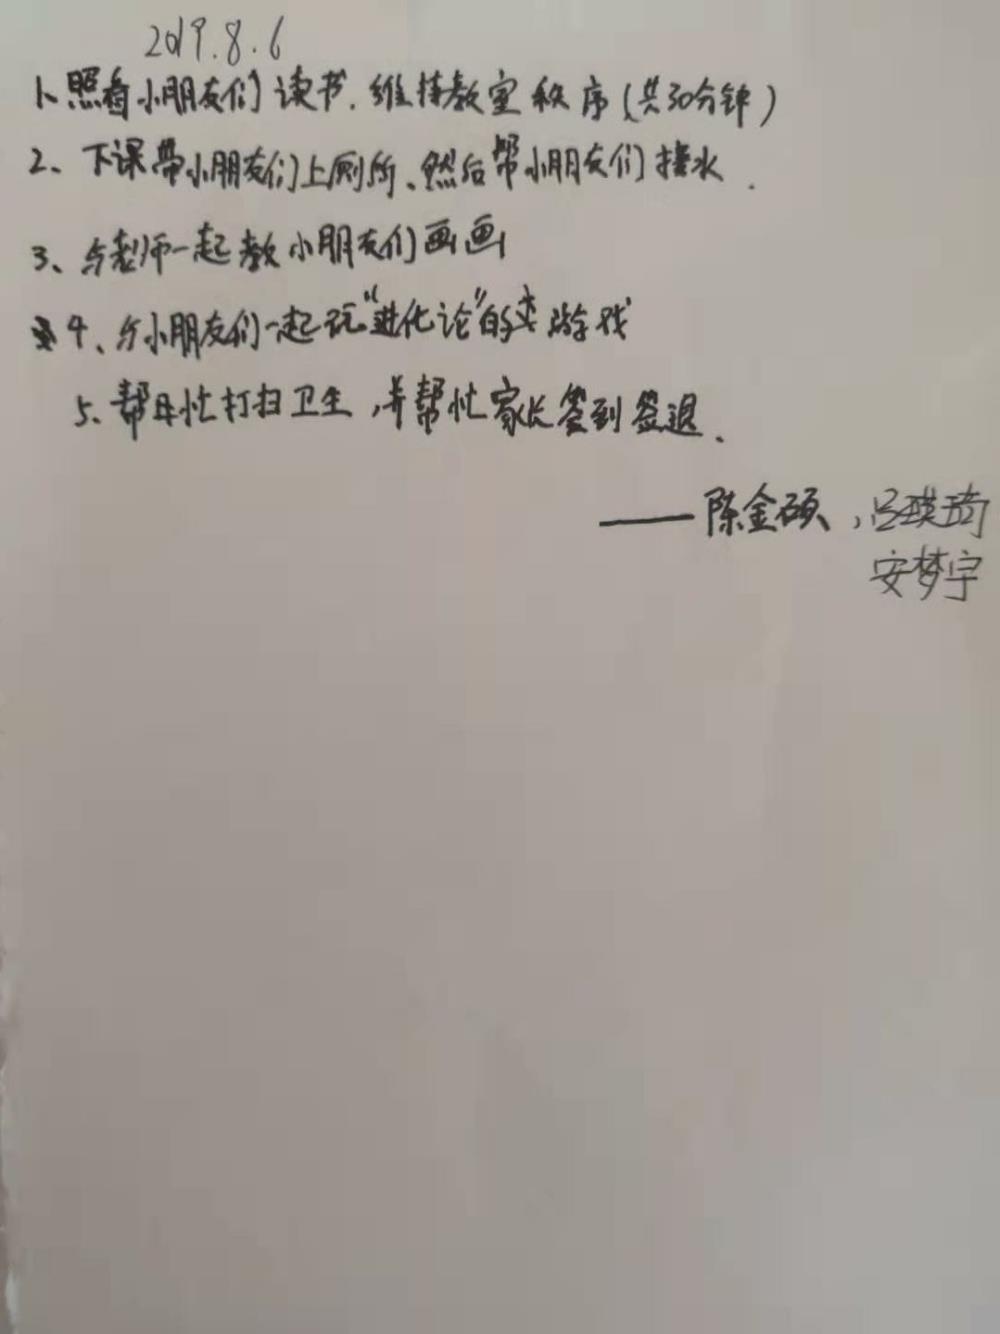 2019.8.6
1、照看小朋友们读书.维持教室秩序(共30分钟)
2、下课带小朋友们上厕所、然后帮小朋友们接水.
3、与老师一起教小朋友们画画
4、与小朋友们一起玩“进化论”的游戏
5、帮忙打扫卫生,并帮忙家长签到签退.
——陈金硕,吕瑛琦
安梦宇